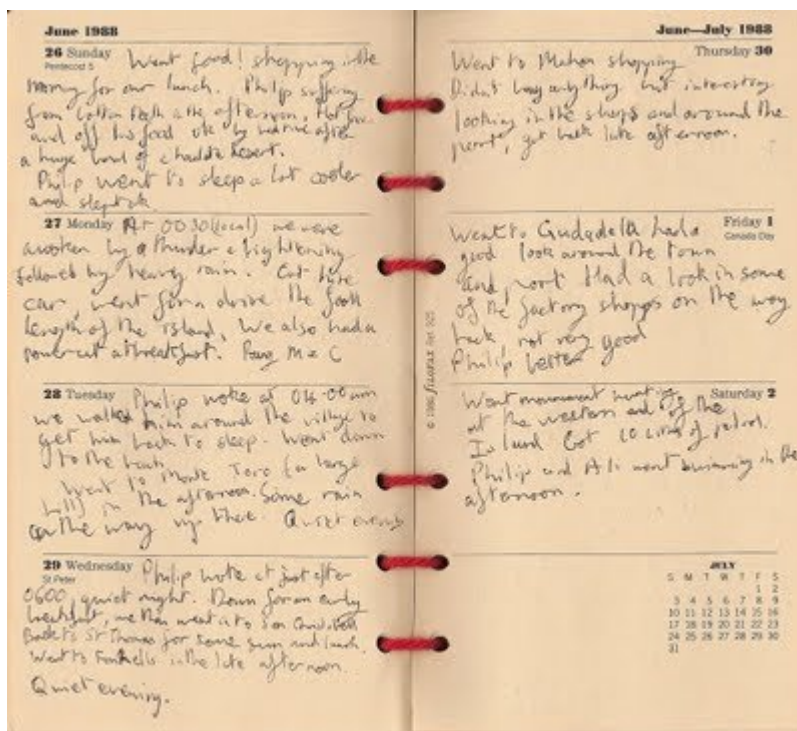 June 1988
26 Sunday Went food! shopping in the
Pentecost 5
morning for our lunch. Philip suffering
from Cotton teeth in the afternoon, Hot
and off his food ok by bedtime after
a huge bowl of desert.
Philip went to sleep a lot cooler
and slept ok.
27 Monday At 0030 (local) we were
awoken by a thunder & lightening
followed by heavy rain. Got hire
car, went for a drive the
length of the Island, We also had a
powercut at breakfast. Rang M & C
28 Tuesday Philip woke at 04.00am
we walked him around the village to
get him back to sleep. Went down
to the beach.
Went to Monte Toro (a large
hill) in the afternoon. Some rain
on the way up there. Quiet evening
29 Wednesday Philip woke at just after
St Peter
0600, quiet night. Down for an early
breakfast, we then went to Son
Back to St Thomas for some sun and lunch.
Went to Fornells in the late afternoon.
Quiet evening.
© 1986 filofax Ref 325
June—July 1988
Thursday 30
Went to Mahon shopping
Didn't buy anything but interesting
looking in the shops and around the
port, got back late afternoon.
Friday 1
Canada Day
Went to Cuidadella had a
good look around the town
and port Had a look in some
of the factory shopps on the way
back, not very good
Philip better
Saturday 2
Went monument hunting
at the western end of the
Island Got 10 Litres of petrol.
Philip and Ali went swimming in the
afternoon.
JULY
S M T W T F S
1 2
3 4 5 6 7 8 9
10 11 12 13 14 15 16
17 18 19 20 21 22 23
24 25 26 27 28 29 30
31